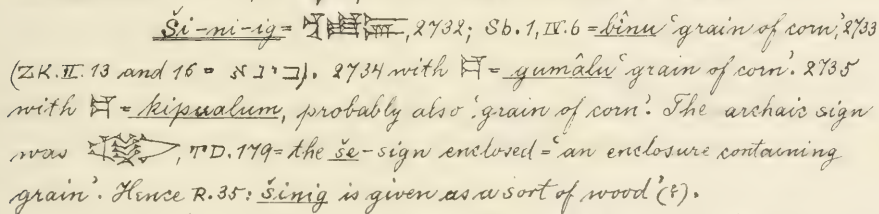 Ši-ni-ig = , 2732; Sb. 1, IV. 6 = bînu 'grain of corn', 2733
(ZK. II. 13 and 16 = בינא). 2734 with = gumâlu 'grain of corn'. 2735
with = kipualum, probably also 'grain of corn'. The archaic sign
was , TD. 179 = the še-sign enclosed = 'an enclosure containing
grain'. Hence R. 35: šinig is given as a sort of wood'(?).